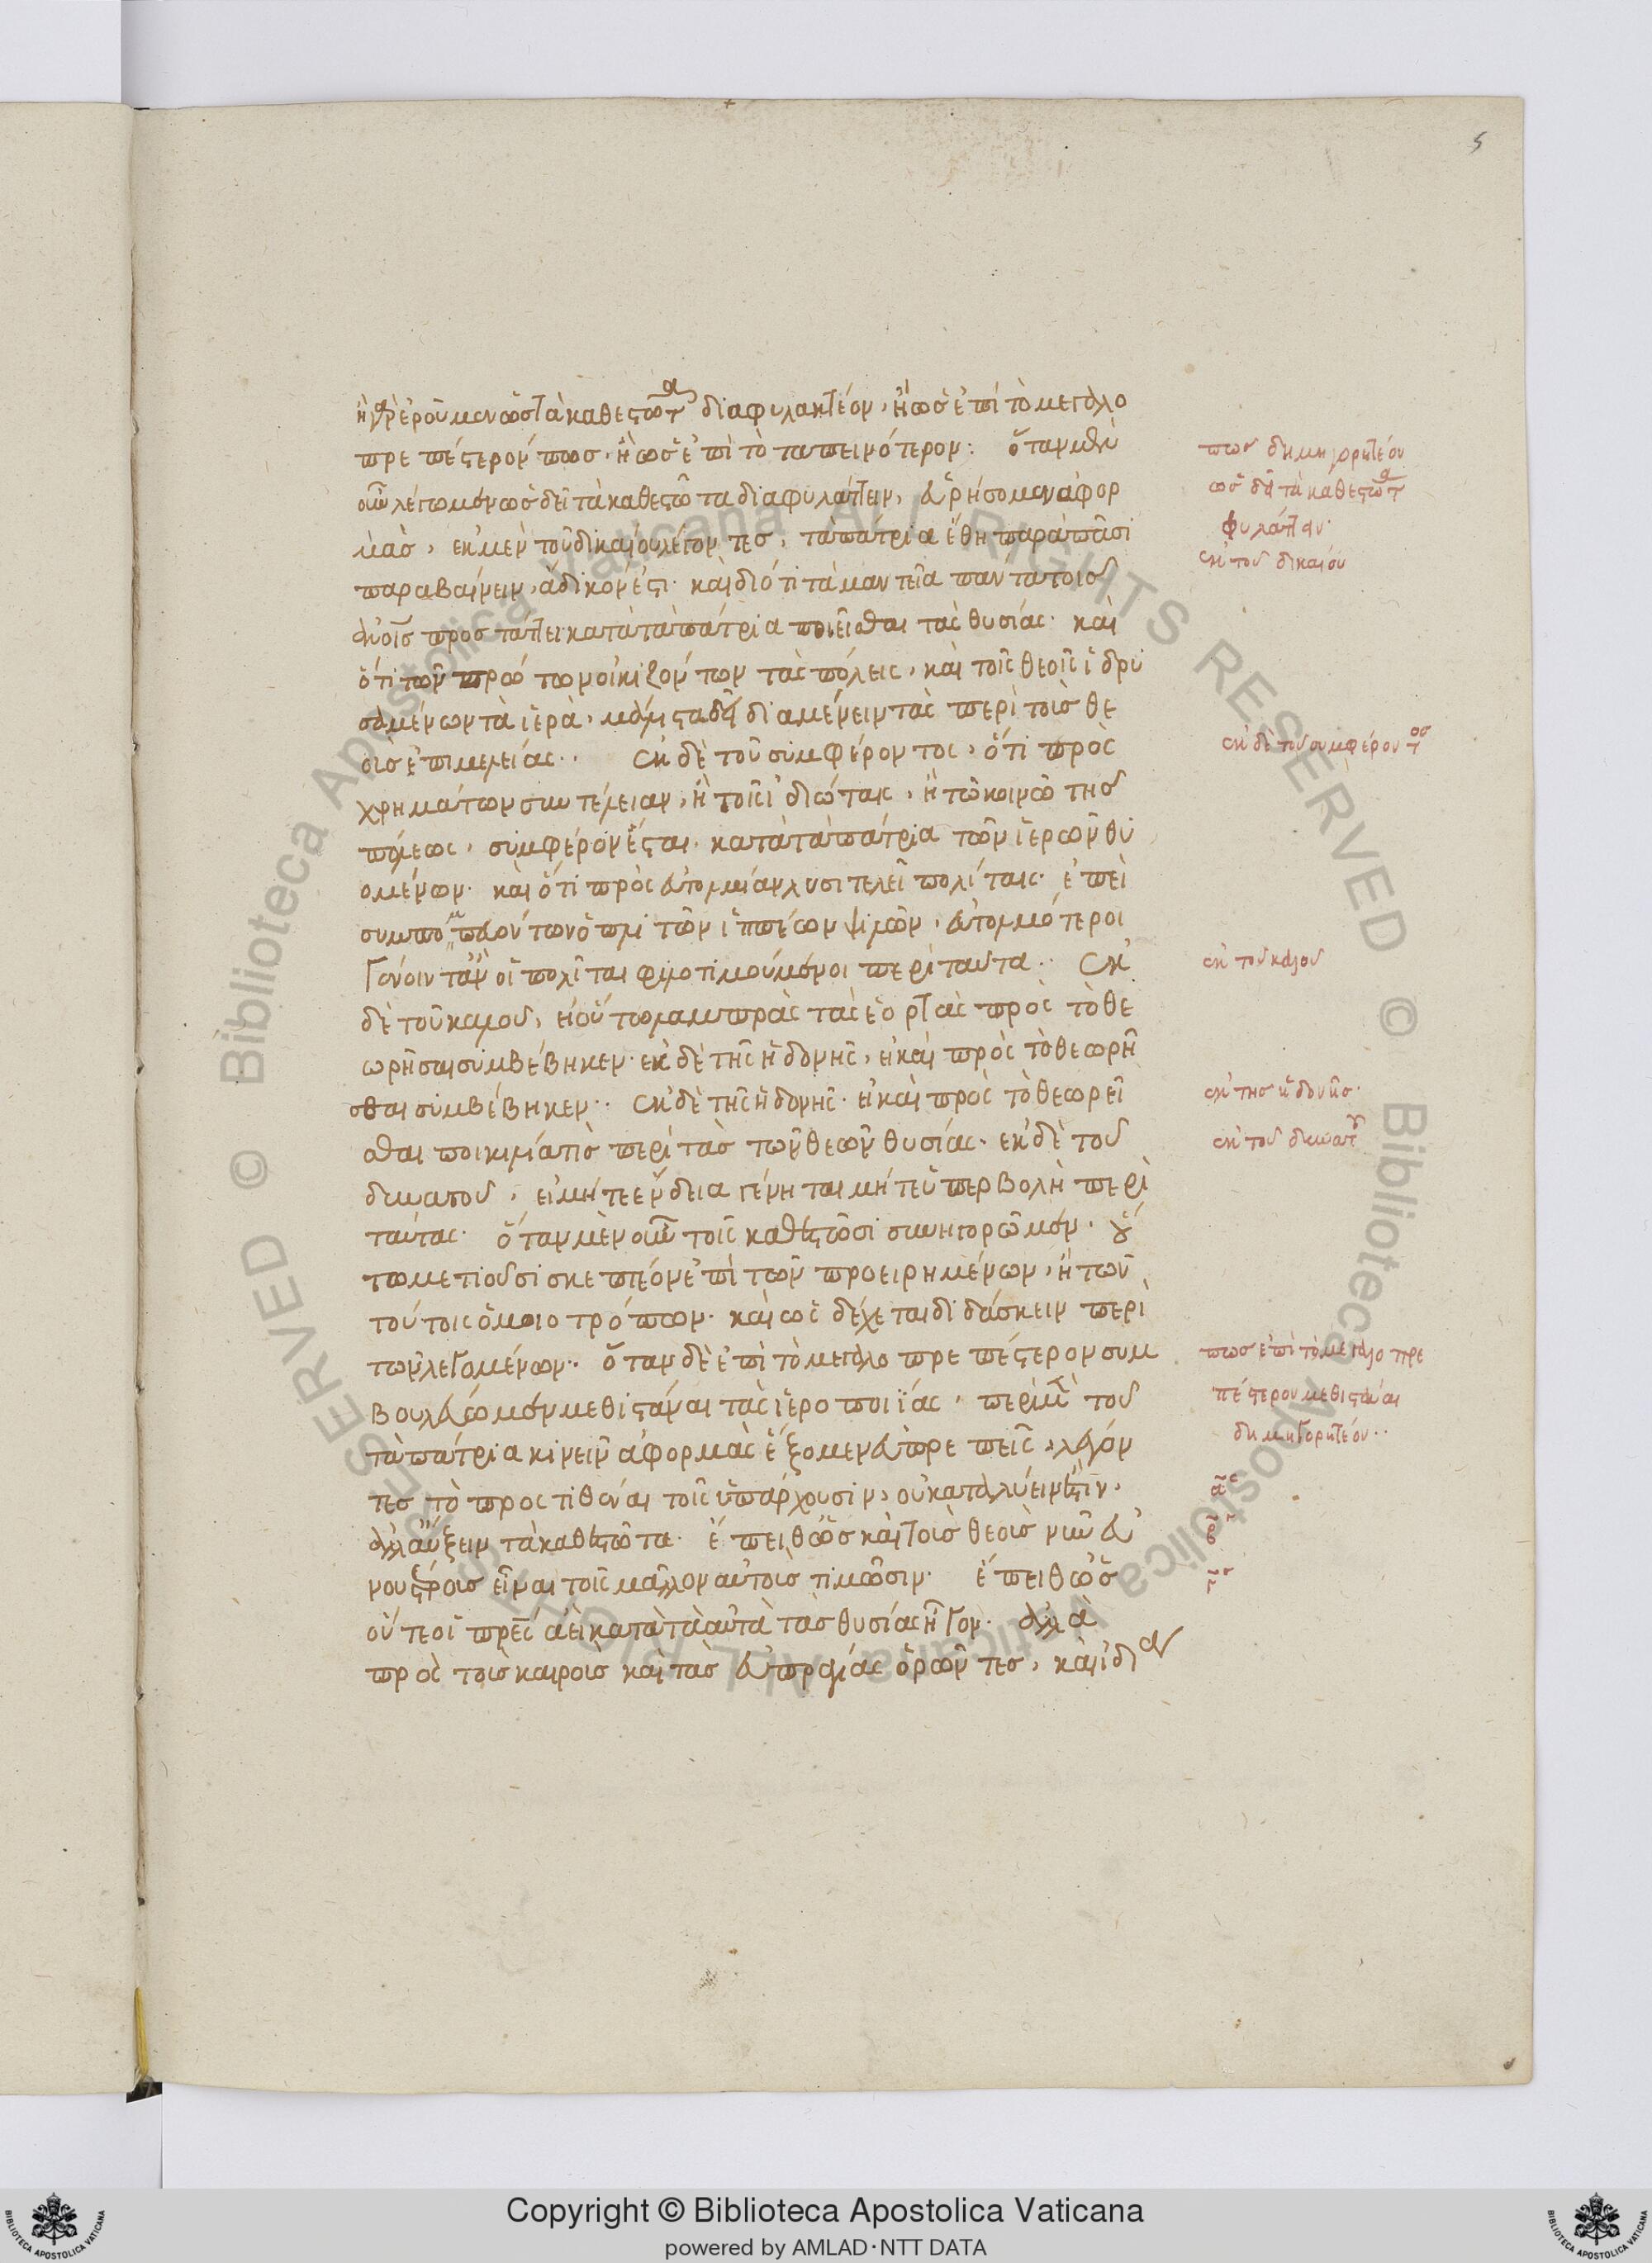 5
ἢ γὰρ ἐροῦμεν ὡς τὰ καθεστῶτα διαφυλακτέον, ἢ ὡς ἐπὶ τὸ μεγαλο
πρεπέστερόν πως, ἢ ὡς ἐπὶ τὸ ταπεινότερον: ὅταν μὲν
οὖν λέγωμεν ὡς δεῖ τὰ καθεστῶτα διαφυλάττειν, εὑρήσομεν ἀφορ
μὰς, ἐκ μὲν τοῦ δικαίου λέγοντες, τὰ πάτρια ἔθη παρὰ πᾶσι
παραβαίνειν, ἄδικόν ἐστι· καὶ διότι τὰ μαντεῖα πάντα τοῖς
ἀνοῖς προστάττει κατὰ τὰ πάτρια ποιεῖσθαι τὰς θυσίας· καὶ
ὅτι τῶν πρώτων οἰκιζόντων τὰς πόλεις, καὶ τοῖς θεοῖς ἱδρυ
σαμένων τὰ ἱερὰ, μάλιστα δεῖ διαμένειν τὰς περὶ τοὺς θε
οὺς ἐπιμελείας·· ἐκ δὲ τοῦ συμφέροντος, ὅτι πρὸς
χρημάτων συντέλειαν, ἢ τοῖς ἰδιώταις, ἢ τῷ κοινῷ τῆς
πόλεως, συμφέρον ἔσται, κατὰ τὰ πάτρια τῶν ἱερῶν θυ
ομένων· καὶ ὅτι πρὸς εὐτολμίαν λυσιτελεῖ πολίταις· ἐπεὶ
συμπο παόντων ὁπλιτῶν ἱππέων ψιλῶν, εὐτολμότεροι
γένοιντ' ἂν οἱ πολῖται φιλοτιμούμενοι περὶ ταῦτα·· ἐκ
δὲ τοῦ καλοῦ, εἰ οὕτω λαμπρὰς τὰς ἑορτὰς πρὸς τὸ θε
ωρῆσαι συμβέβηκεν· ἐκ δὲ τῆς ἡδονῆς, εἰ καὶ πρὸς τὸ θεωρῆ
σθαι συμβέβηκεν·· ἐκ δὲ τῆς ἡδονῆς· εἰ καὶ πρὸς τὸ θεωρεῖ
σθαι ποικιλία τις περὶ τὰς τῶν θεῶν θυσίας· ἐκ δὲ τοῦ
δυνατοῦ, εἰ μήτε ἔνδεια γένηται μήτε ὑπερβολὴ περὶ
ταύτας· ὅταν μὲν οὖν τοῖς καθεστῶσι συνηγορῶμεν· οὕ
τω μετιοῦσι σκεπτέον ἐπὶ τῶν προειρημένων, ἢ τῶν
τούτοις ὁμοιοτρόπων· καὶ ὡς δέχεται διδάσκειν περὶ
τῶν λεγομένων·· ὅταν δὲ ἐπὶ τὸ μεγαλοπρεπέστερον συμ
βουλεύωμεν μεθιστάναι τὰς ἱεροποιΐας, περὶ μὲν τοῦ
τὰ πάτρια κινεῖν ἀφορμὰς ἕξομεν εὐπρεπεῖς, λέγον
τες τὸ προστιθέναι τοῖς ὑπάρχουσιν, οὐ καταλύειν ἐστὶν,
ἀλλ' αὔξειν τὰ καθεστῶτα· ἔπειθ' ὡς καὶ τοὺς θεοὺς νῦν εὐ
νουστέροις εἶναι τοῖς μᾶλλον αὐτοὺς τιμῶσιν· ἔπειθ' ὡς
οὔτε οἱ πρες ἀεὶ κατὰ τὰ αὐτὰ τὰς θυσίας ἦγον· ἀλλὰ
πρὸς τοὺς καιροὺς καὶ τὰς εὐπραγίας ὁρῶντες, καὶ ἰδίαν
πῶς δημηγορητέον
ὡς δεῖ τὰ καθεστῶτα
φυλάττειν·
ἐκ τοῦ δικαίου
ἐκ δὲ τοῦ συμφέροντος
ἐκ τοῦ καλοῦ
ἐκ τῆς ἡδονῆς·
ἐκ τοῦ δυνατοῦ
πῶς ἐπὶ τὸ μεγαλοπρε
πέστερον μεθιστάναι
δημηγορητέον··
α
β
γ
Copyright © Biblioteca Apostolica Vaticana
powered by AMLAD·NTT DATA
© Biblioteca Apostolica Vaticana ALL RIGHTS RESERVED © Biblioteca Apostolica Vaticana ALL RIGHTS RESERVED
BIBLIOTECA APOSTOLICA VATICANA
BIBLIOTECA APOSTOLICA VATICANA